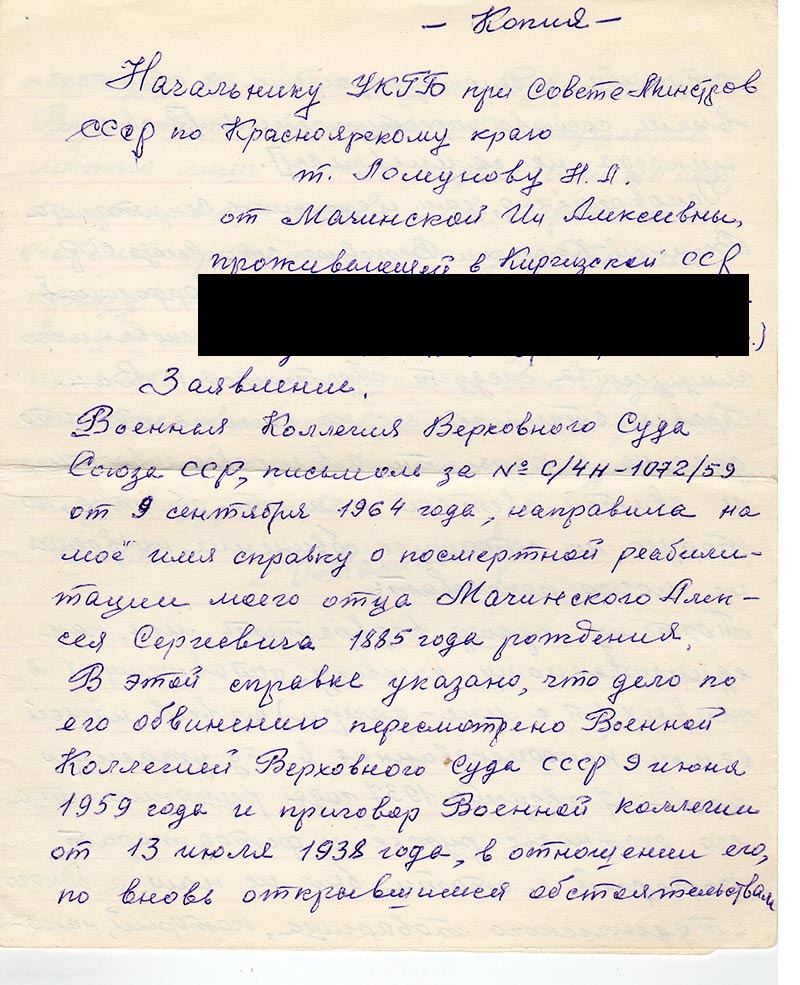 — Копия —
Начальнику УКГБ при Совете Минстров
СССР по Красноярскому краю
т. Ломунову Н. П.
от Мачинской Ии Алексеевны,
проживающей в Киргизской ССР
Заявление.
Военная Коллегия Верховного Суда
Союза ССР, письмом за № С/4н-1072/59
от 9 сентября 1964 года, направила на
моё имя справку о посмертной реабили-
тации моего отца Мачинского Алек-
сея Сергеевича 1885 года рождения.
В этой справке указано, что дело по
его обвинению пересмотрено Военной
Коллегией Верховного Суда СССР 9 июня
1959 года и приговор Военной коллегии
от 13 июля 1938 года, в отношении его,
по вновь открывшимся обстоятельствам